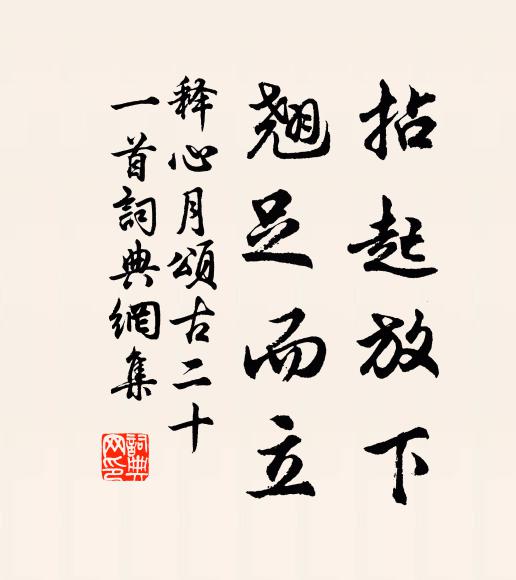 拈起放下
翹足而立
释心月頌古二十
一首詞典網集
詞典网印